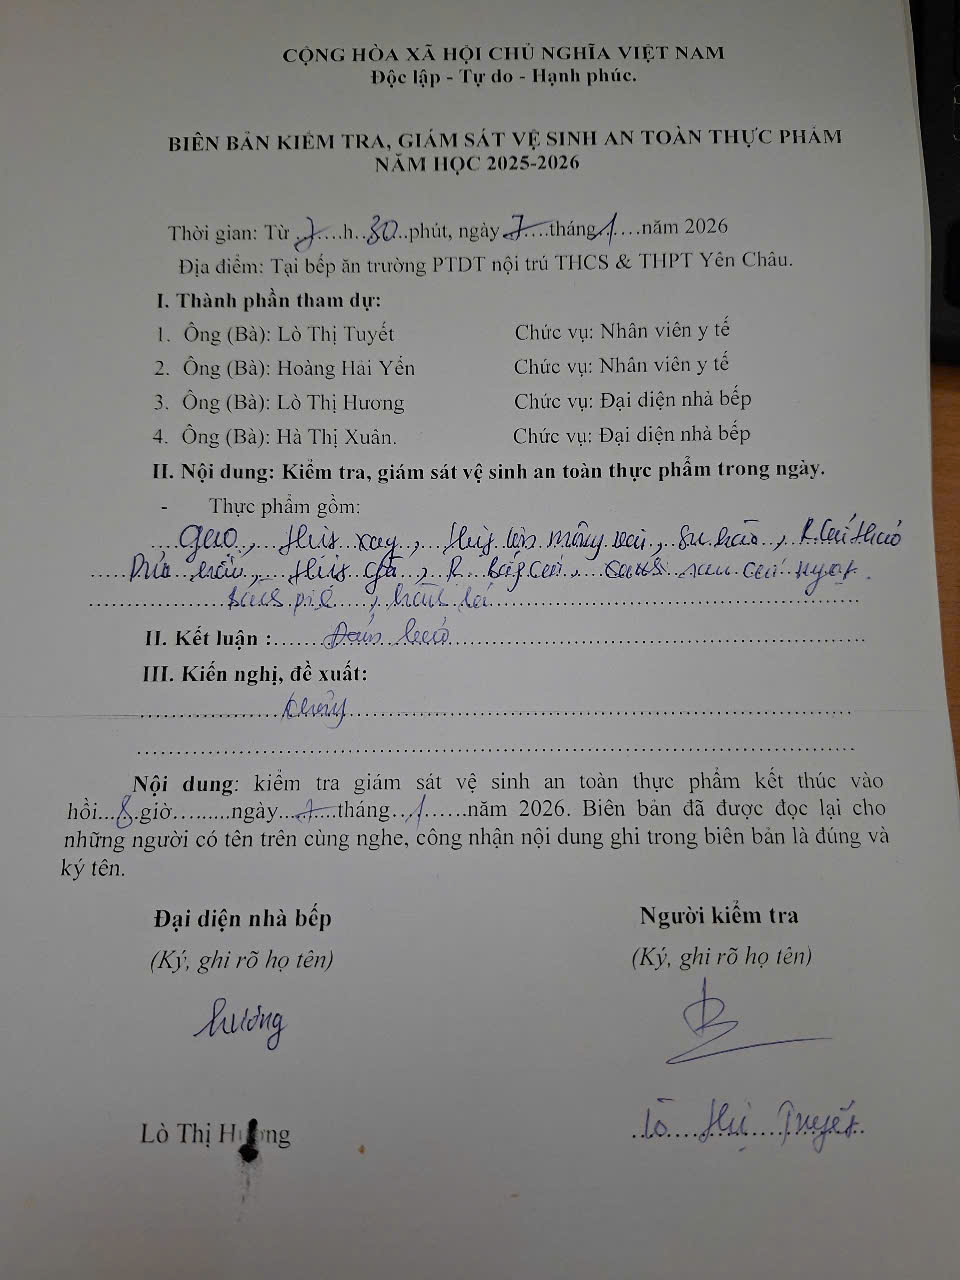 CỘNG HÒA XÃ HỘI CHỦ NGHĨA VIỆT NAM
Độc lập - Tự do - Hạnh phúc.
BIÊN BẢN KIỂM TRA, GIÁM SÁT VỆ SINH AN TOÀN THỰC PHẨM
NĂM HỌC 2025-2026
Thời gian: Từ 7 h 30 phút, ngày 7 tháng 1 năm 2026
Địa điểm: Tại bếp ăn trường PTDT nội trú THCS & THPT Yên Châu.
I. Thành phần tham dự:
1. Ông (Bà): Lò Thị Tuyết Chức vụ: Nhân viên y tế
2. Ông (Bà): Hoàng Hải Yến Chức vụ: Nhân viên y tế
3. Ông (Bà): Lò Thị Hương Chức vụ: Đại diện nhà bếp
4. Ông (Bà): Hà Thị Xuân. Chức vụ: Đại diện nhà bếp
II. Nội dung: Kiểm tra, giám sát vệ sinh an toàn thực phẩm trong ngày.
- Thực phẩm gồm:
gạo, thịt xay, thịt lợn mông vai, su hào, R. cải thảo
thịt gà, R. bắp cải, canh rau cải ngọt.
hành lá
II. Kết luận : Đảm bảo
III. Kiến nghị, đề xuất:
không
Nội dung: kiểm tra giám sát vệ sinh an toàn thực phẩm kết thúc vào
hồi 8 giờ ngày 7 tháng 1 năm 2026. Biên bản đã được đọc lại cho
những người có tên trên cùng nghe, công nhận nội dung ghi trong biên bản là đúng và
ký tên.
Đại diện nhà bếp Người kiểm tra
(Ký, ghi rõ họ tên) (Ký, ghi rõ họ tên)
Hương
Lò Thị Hương Lò Thị Tuyết